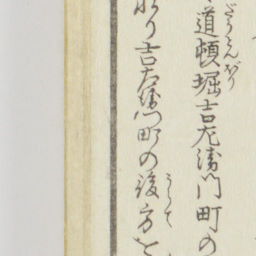 道頓堀吉左衛門町の
り吉左衛門町の後方を
だうとんぼり
うしろて